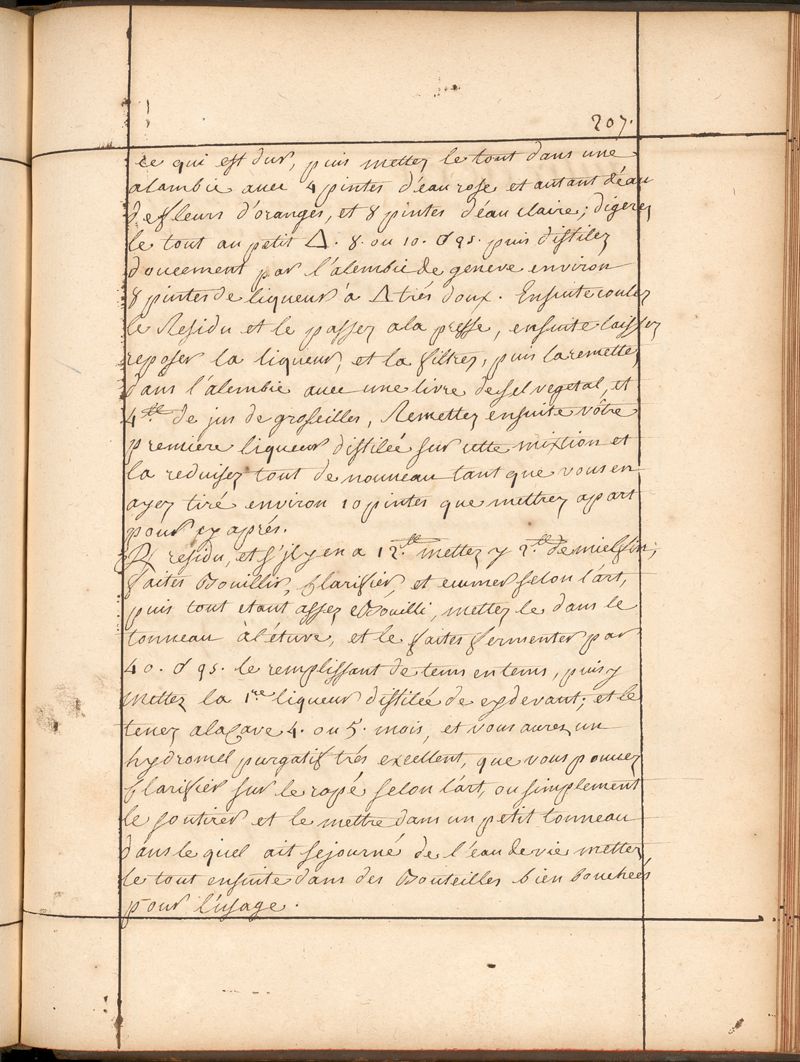 207.
ce qui est dur, puis mettez le tout dans une
alambic avec 4 pintes d'eau rose et autant d'eau
de fleurs d'oranges, et 8 pintes d'eau claire; digerez
le tout au petit △. 8. ou 10. d 9s. puis distilez
doucement par l'alembic de geneve environ
8 pintes de liqueur à △ trés doux. Ensuite coulez
le Residu et le passez a la presse, ensuite laissez
reposer la liqueur, et la filtrez, puis la remettez
dans l'alembic avec une livre de sel vegetal, et
4.tt de jus de groseilles, Remettez ensuite vôtre
premiere liqueur distilée sur cette mixtion et
la reduisez tout de nouveau tant que vous en
ayez tiré environ 10 pintes que mettrez apart
pour cy aprés.
residu, et s'jl y en a 12.tt mettez y 2.tt de miel fin,
faites Bouillir, clarifier, et ecumer selon l'art,
puis tout etant assez Bouilli, mettez le dans le
tonneau à l'étuve, et le faites fermenter par
40. d 9s. le remplissant de tems en tems, puis y
mettez la 1.re liqueur distilée de cy devant; et le
tenez a la Cave 4. ou 5. mois, et vous aurez un
hydromel purgatif trés excellent, que vous pouvez
clarifier sur le rapé selon l'art, ou simplement
le soutirer et le mettre dans un petit tonneau
dans le quel ait sejourné de l'eau de vie mettez
le tout ensuite dans des Bouteilles bien bouchées
pour l'usage.